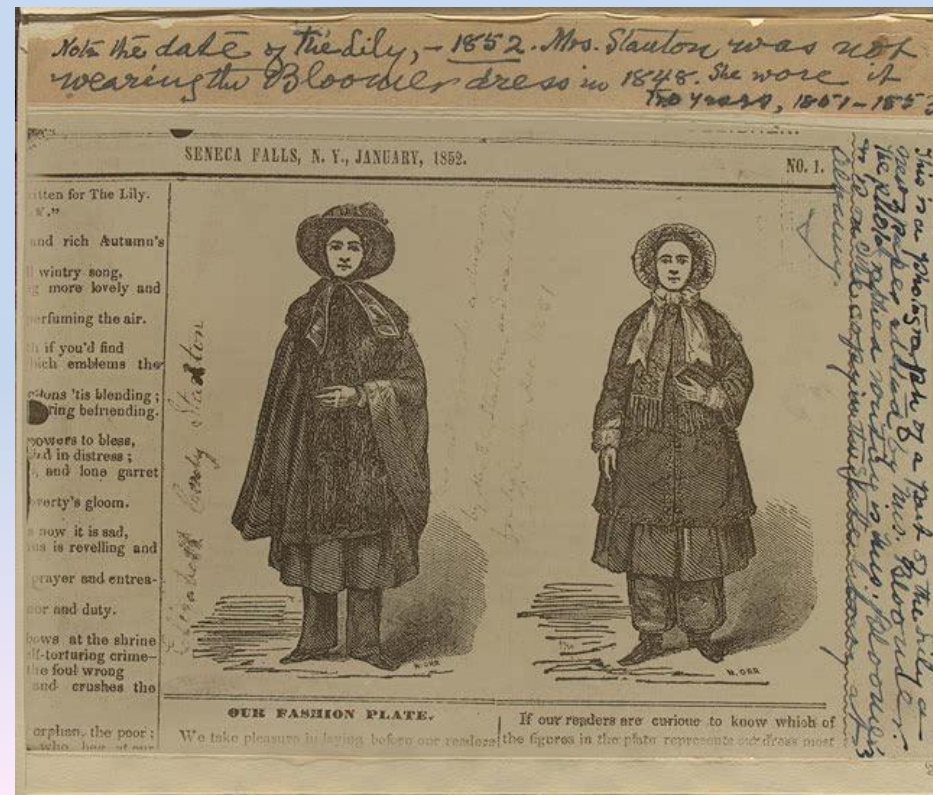 Note the date of the Lily, - 1852. Mrs. Stanton was not
wearing the Bloomer dress in 1848. She wore it
two years, 1851-1853
SENECA FALLS, N. Y., JANUARY, 1852.
NO. 1.
itten for The Lily.
and rich Autumn's
wintry song,
more lovely and
erfuming the air.
if you'd find
hich emblems the
'tis blending;
ring befriending.
powers to bless,
in distress;
, and lone garret
verty's gloom.
now it is sad,
is revelling and
prayer and entrea-
or and duty.
ows at the shrine
lf-torturing crime-
he foul wrong
and crushes the
orphan, the poor;
Elizabeth Cady Stanton
N. ORR
N. ORR
OUR FASHION PLATE.
We take pleasure in laying before our readers
If our readers are curious to know which of
the figures in the plate represents our dress most
This is a photograph of a part of the Lily a
newspaper edited by Mrs. Bloomer.
The photographed writing is Mrs. Bloomer's
on the copy in the State Library at
Albany.